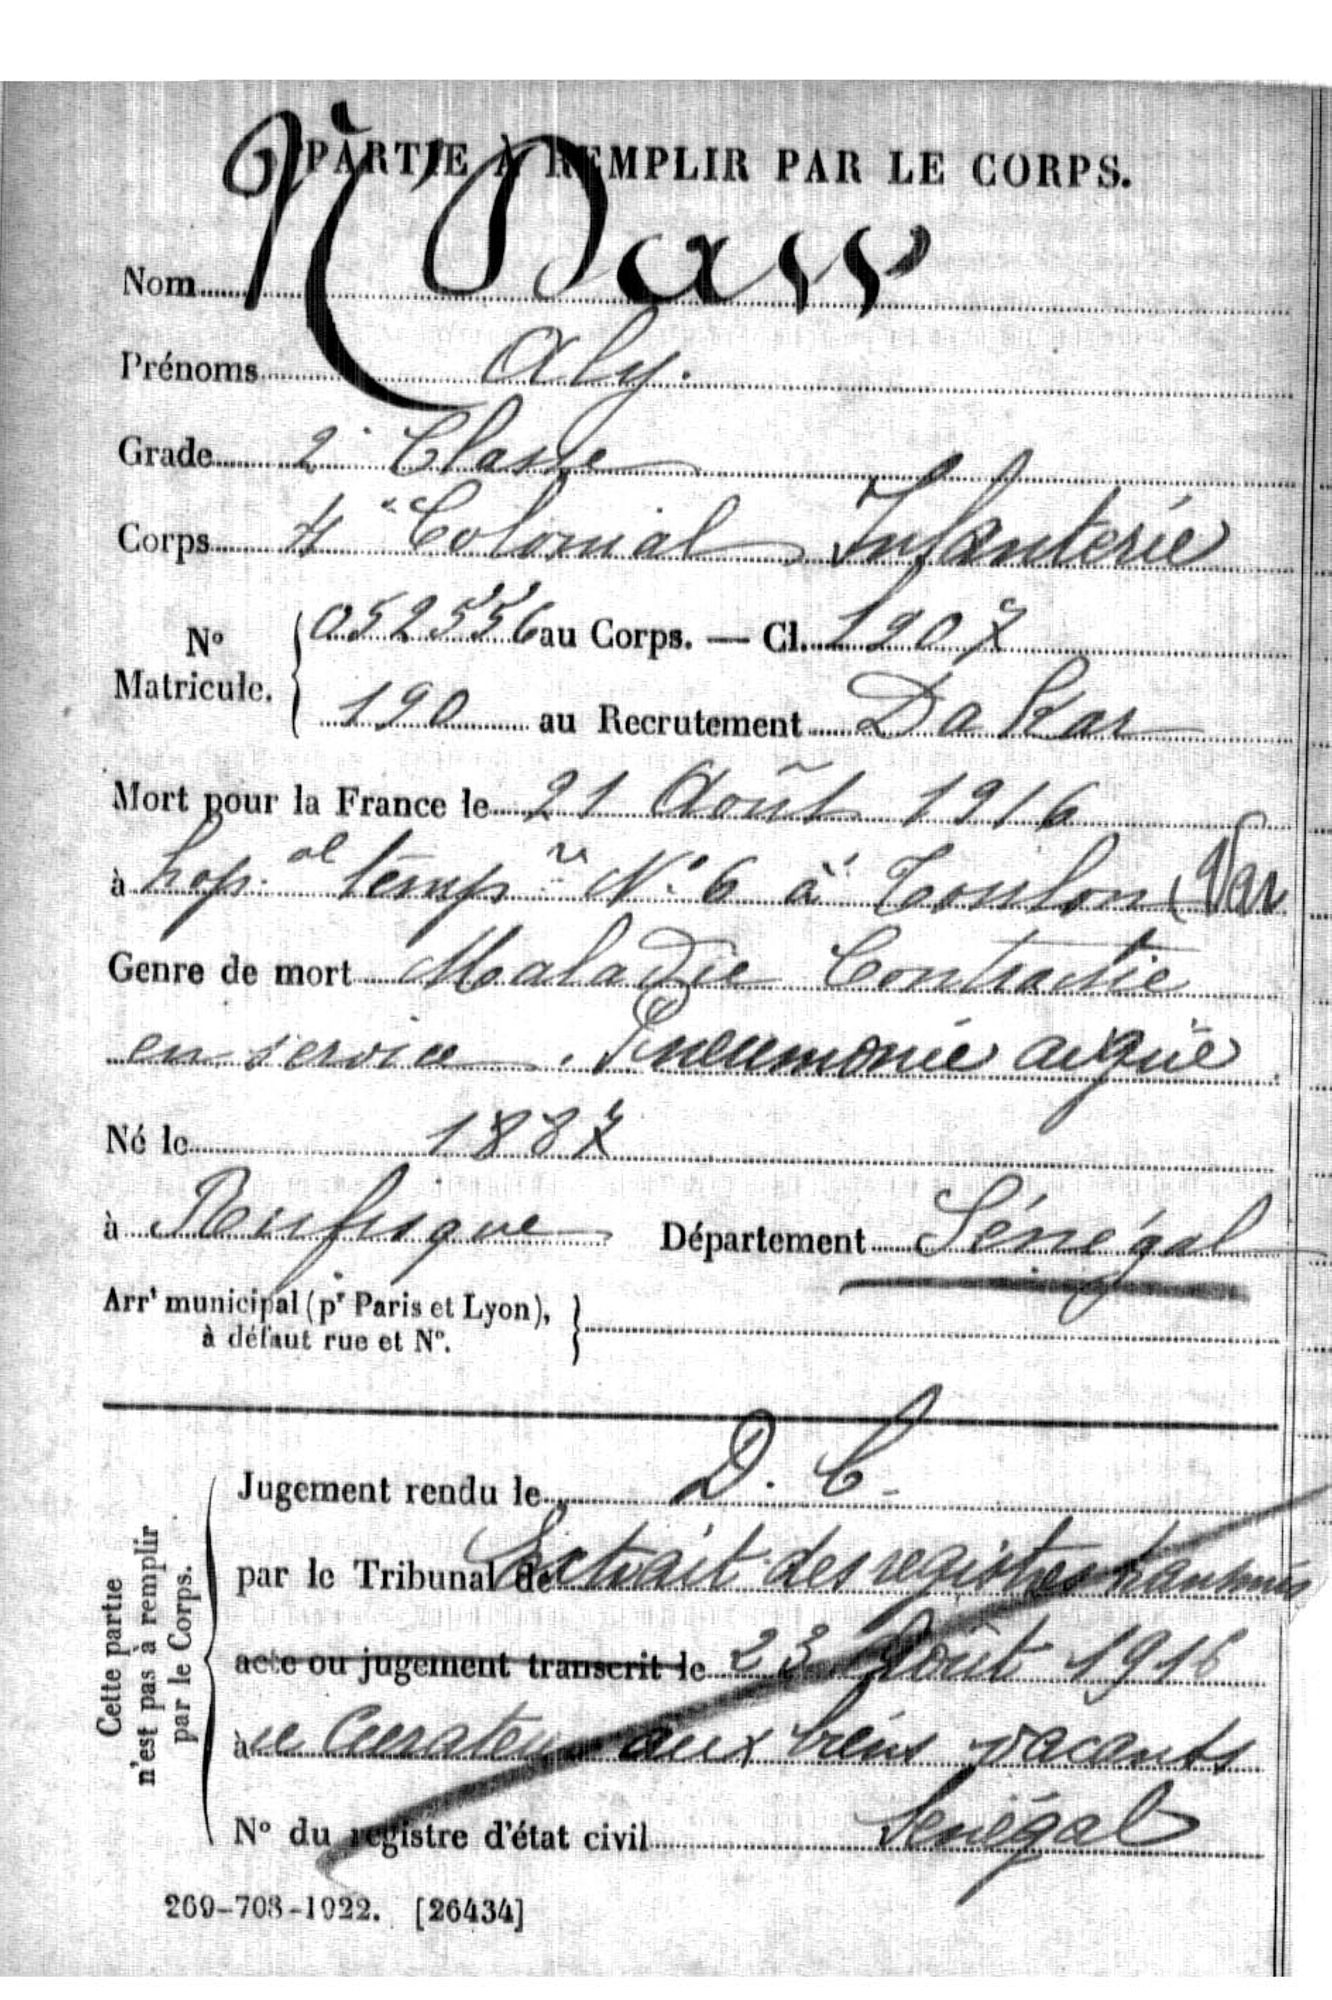 PARTIE À REMPLIR PAR LE CORPS.
Nom N'Daw
Prénoms Aly.
Grade 2e Classe
Corps 4e Colonial Infanterie
No Matricule. { 052556 au Corps. — Cl. 1907
190 au Recrutement Dakar
Mort pour la France le 21 Août 1916
à hop.al temp.re No 6 à Toulon (Var
Genre de mort Maladie Contractée
en service. Pneumonie aigüe
Né le 1887
à Rufisque Département Sénégal
Arrt municipal (pr Paris et Lyon), à défaut rue et No. }
Cette partie n'est pas à remplir par le Corps.
Jugement rendu le D. C.
par le Tribunal de Extrait des registres transmis
acte ou jugement transcrit le 23 Août 1916
à u Curateur aux biens vacants
No du registre d'état civil Sénégal
269-708-1922. [26434]